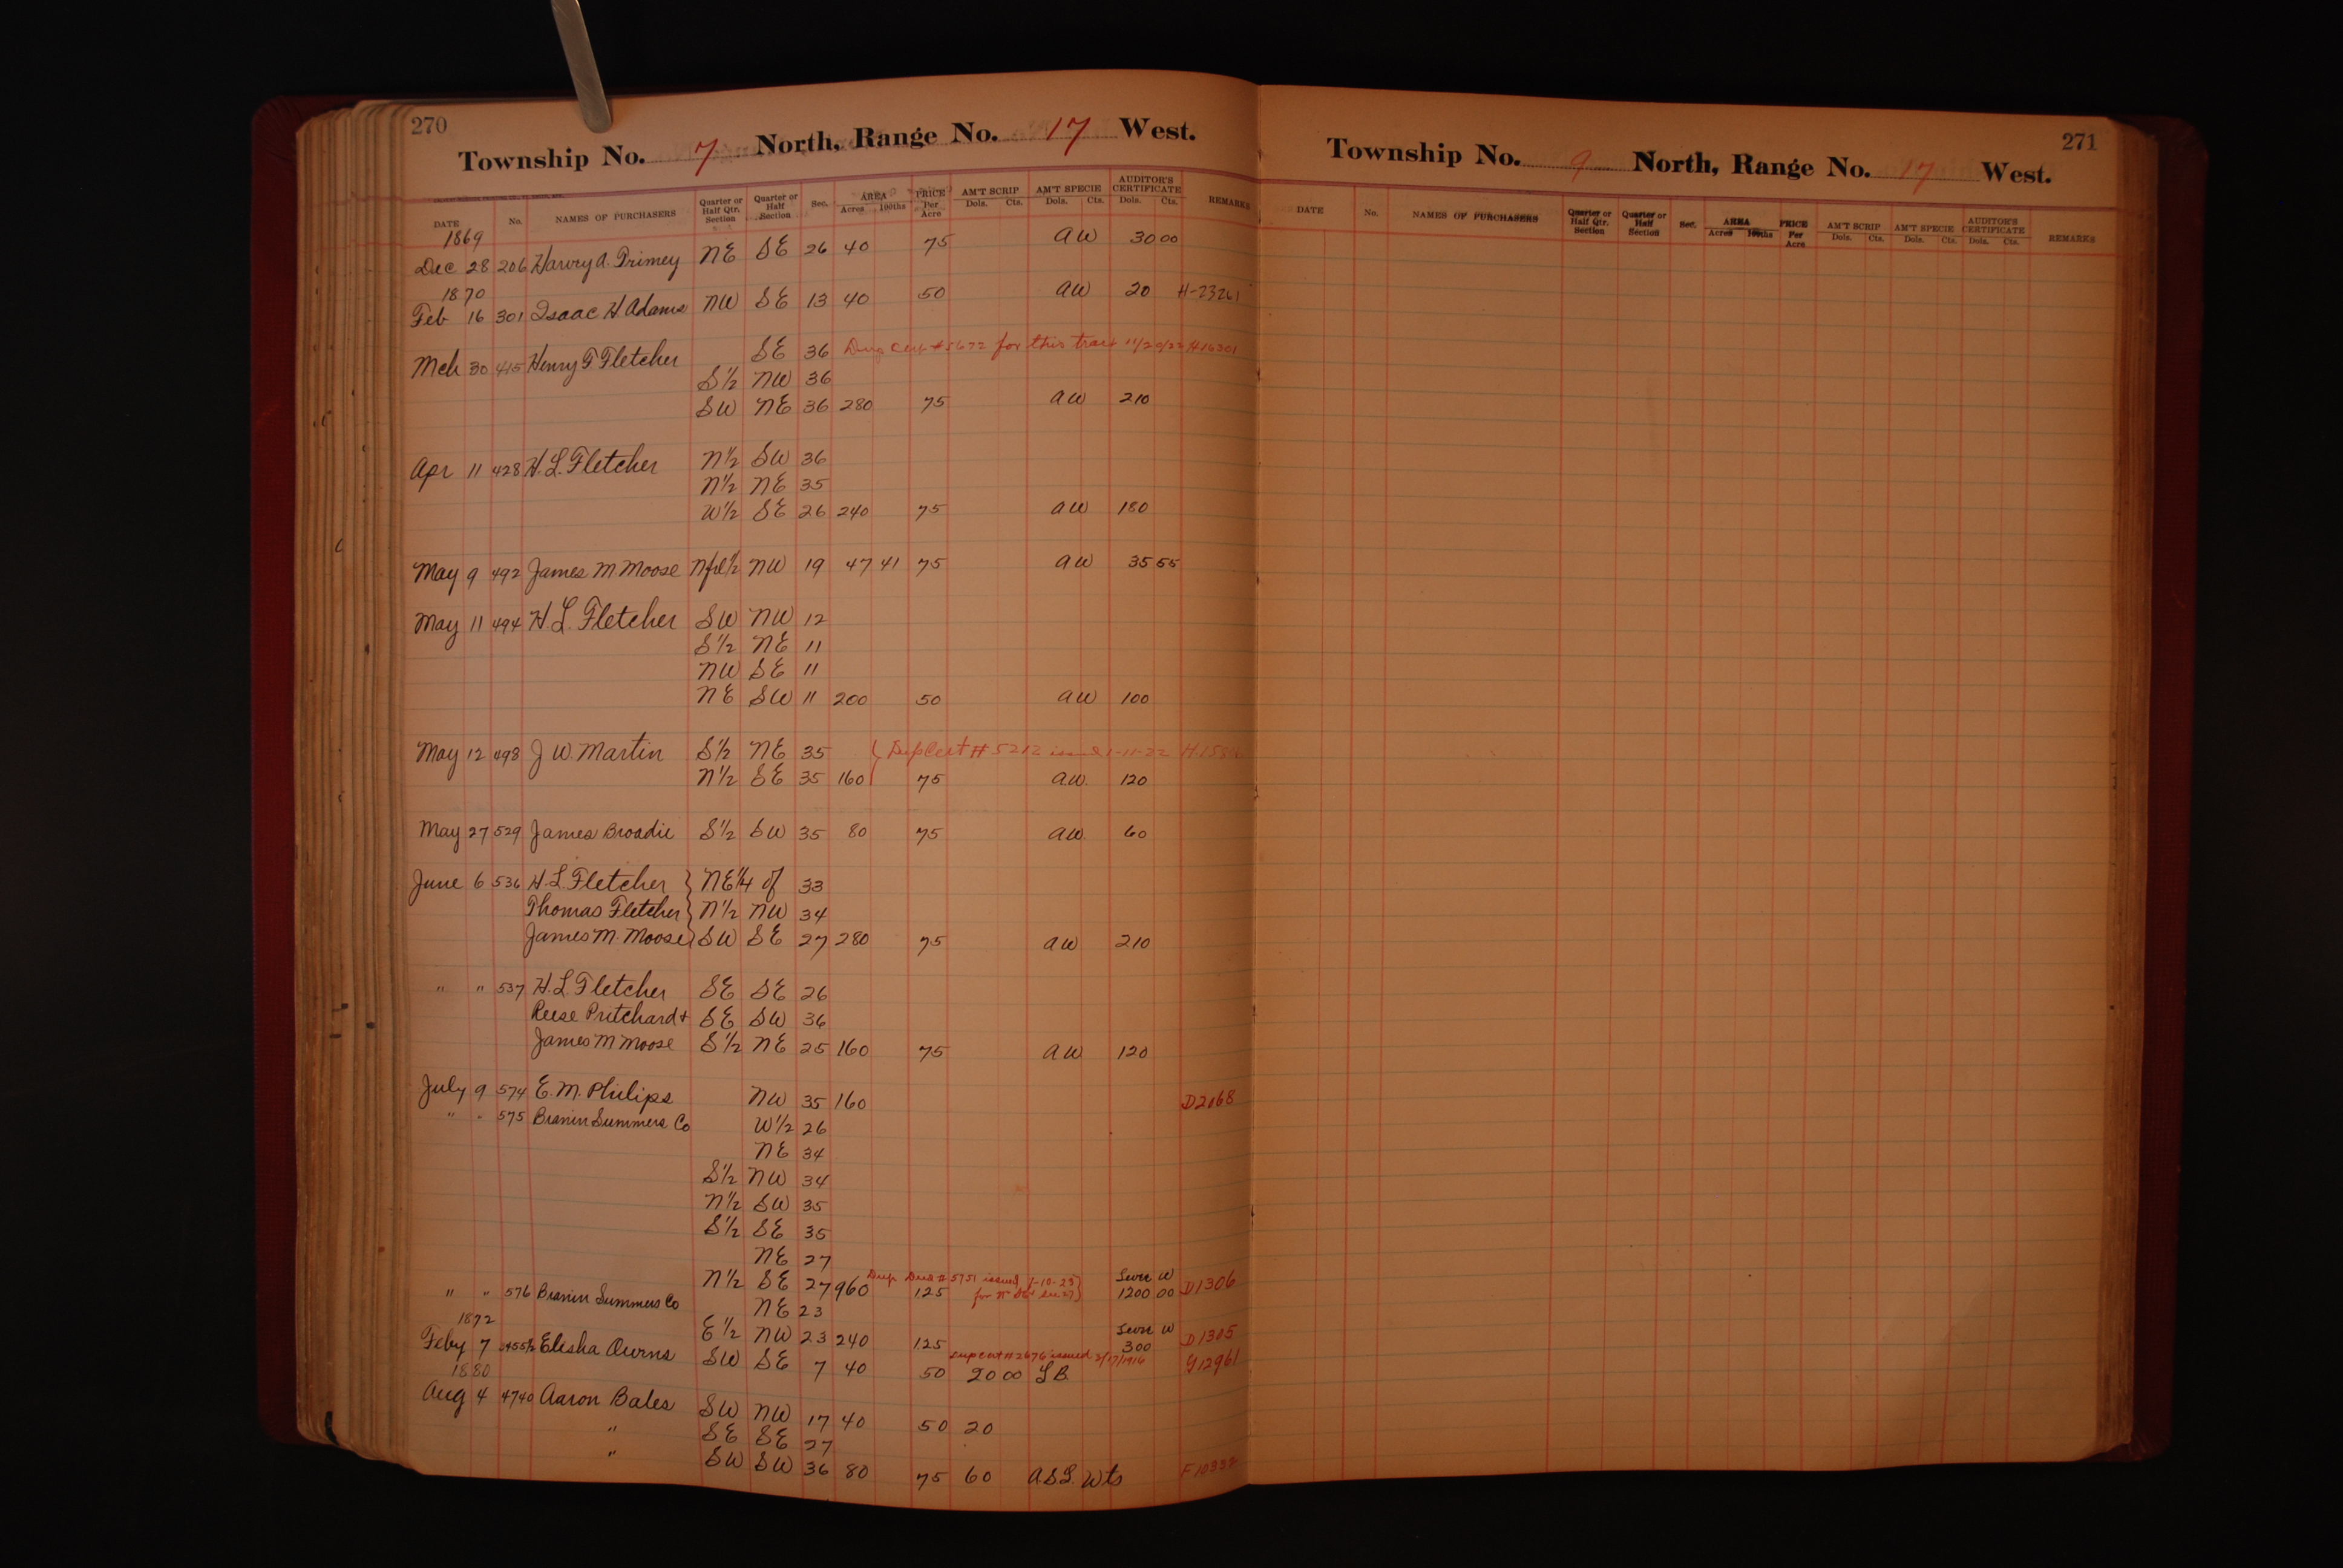 270
Township No. 7 North, Range No. 17 West.
DATE No. NAMES OF PURCHASERS Quarter or Half Qtr. Section Quarter or Half Section Sec. AREA Acres 100ths PRICE Per Acre AM'T SCRIP Dols. Cts. AM'T SPECIE Dols. Cts. AUDITOR'S CERTIFICATE Dols. Cts. REMARKS
1869
Dec 28 206 Harvey A. Primey NE SE 26 40 75 AW 30 00
1870
Feb 16 301 Isaac H Adams NW SE 13 40 50 AW 20 H-23261
Mch 30 415 Henry F Fletcher SE 36 Dup Cert #5672 for this tract 11/20/22 H16301
S½ NW 36
SW NE 36 280 75 AW 210
Apr 11 428 H. L. Fletcher N½ SW 36
N½ NE 35
W½ SE 26 240 75 AW 180
May 9 492 James M Moose N frl ½ NW 19 47 41 75 AW 35 55
May 11 494 H. L. Fletcher SW NW 12
S½ NE 11
NW SE 11
NE SW 11 200 50 AW 100
May 12 498 J W. Martin S½ NE 35 (Dup Cert # 5212 issued 1-11-22
N½ SE 35 160 75 AW. 120
May 27 529 James Broadie S½ SW 35 80 75 AW. 60
June 6 536 H. L. Fletcher } NE¼ of 33
Thomas Fletcher } N½ NW 34
James M. Moose } SW SE 27 280 75 AW 210
" " 537 H. L. Fletcher SE SE 26
Reese Pritchard + SE SW 36
James M Moose S½ NE 25 160 75 AW 120
July 9 574 E. M. Philips NW 35 160 D2168
" " 575 Branin Summers Co W½ 26
NE 34
S½ NW 34
N½ SW 35
S½ SE 35
NE 27
N½ SE 27 960 Dup Deed # 5751 issued 1-10-23 125 Swre W 1200 00 D1306
" " 576 Branin Summers Co NE 23
E½ NW 23 240 125 Swre W 300 D1305
1872
Feby 7 3455½ Elisha Owens SW SE 7 40 50 20 00 L B. Dup cert # 2676 issued 2/17/1916 G12961
1880
Aug 4 4740 Aaron Bales SW NW 17 40 50 20
" SE SE 27
" SW SW 36 80 75 60 A.S.L. Wts F10332
271
Township No. 9 North, Range No. 17 West.
DATE No. NAMES OF PURCHASERS Quarter or Half Qtr. Section Quarter or Half Section Sec. AREA Acres 100ths PRICE Per Acre AM'T SCRIP Dols. Cts. AM'T SPECIE Dols. Cts. AUDITOR'S CERTIFICATE Dols. Cts. REMARKS